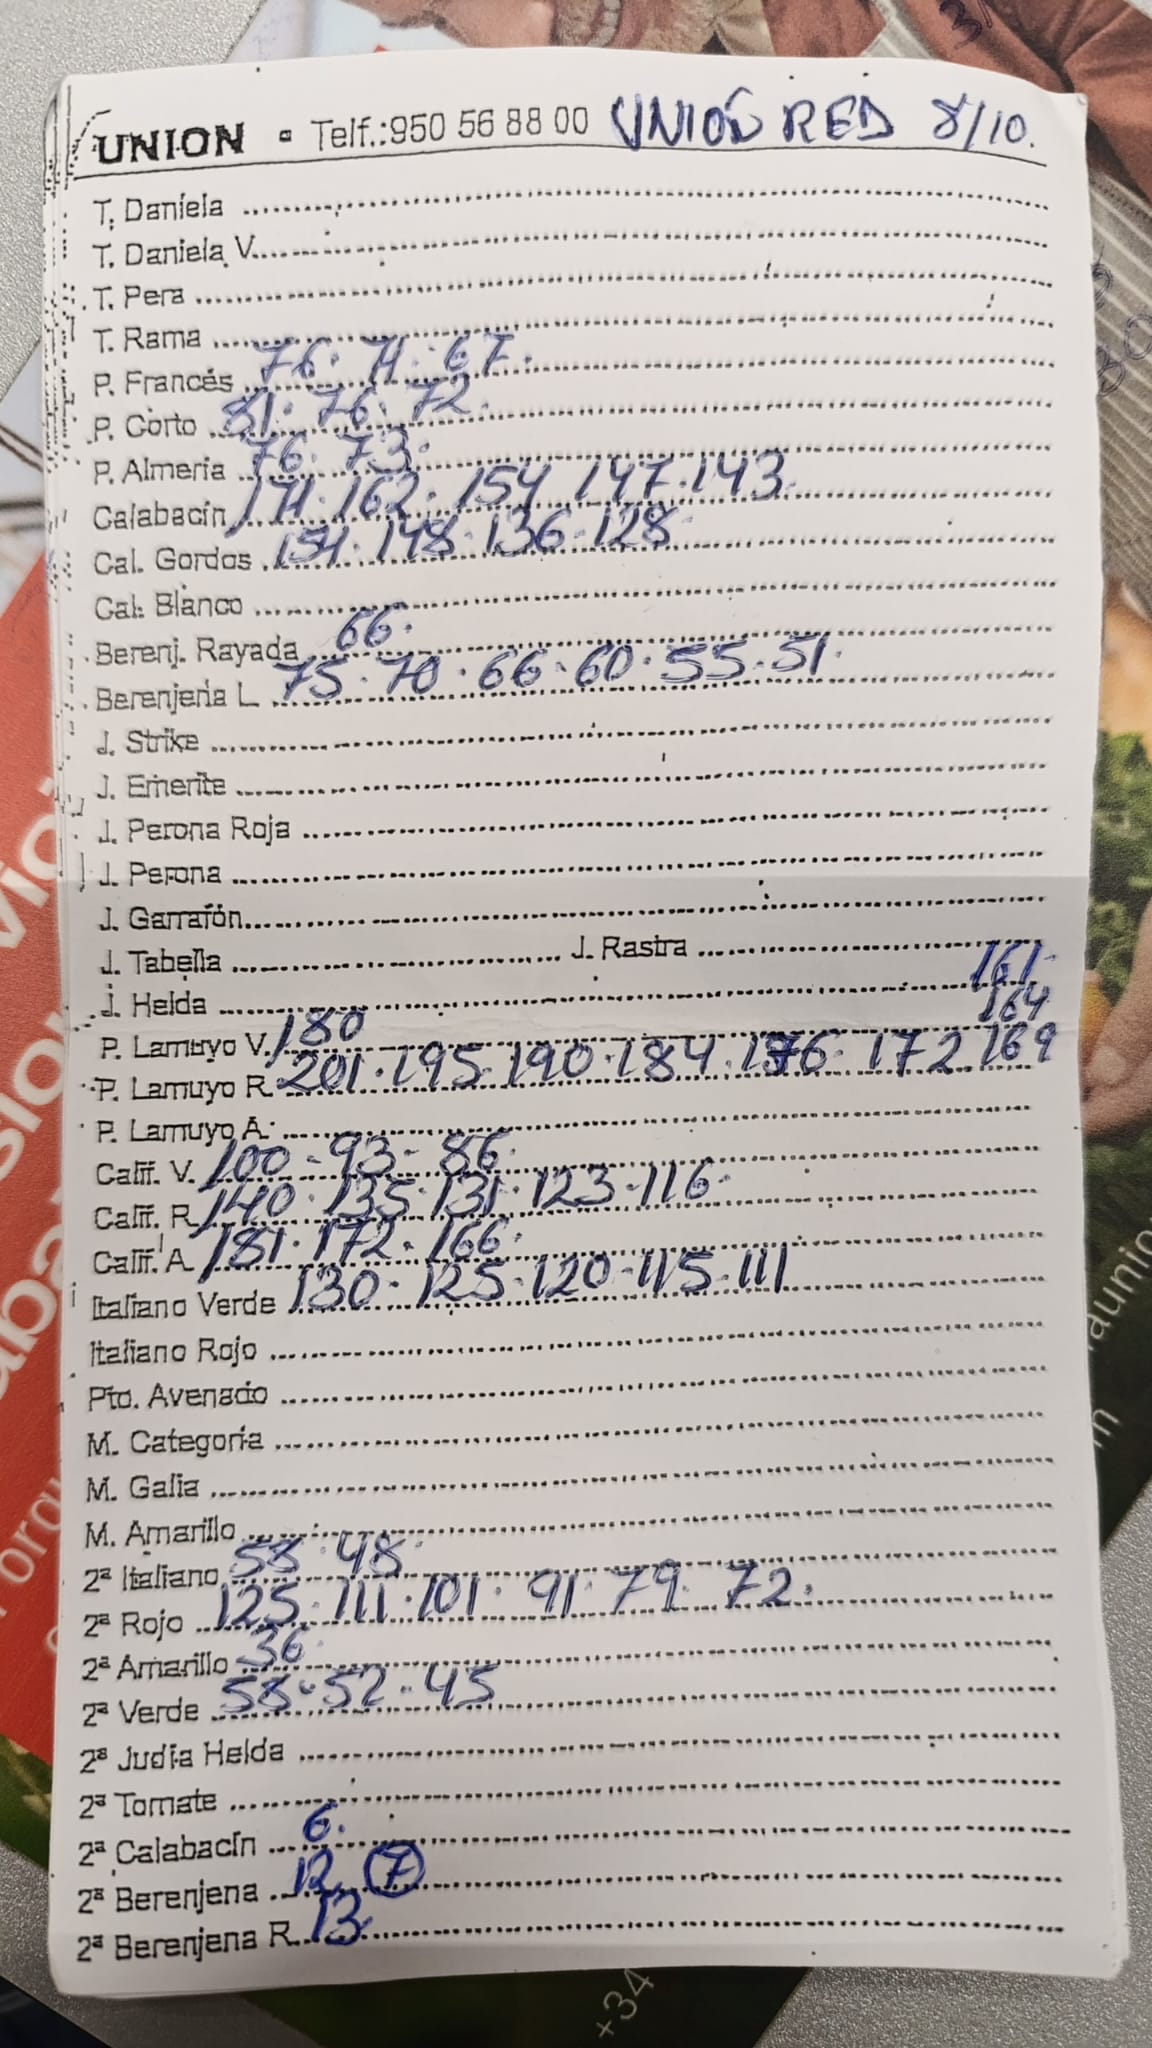 UNION ▪ Telf.:950 56 88 00 UNION RED 8/10.
T. Daniela
T. Daniela V.
T. Pera
T. Rama
P. Francés 76. 71. 67.
P. Corto 81. 76. 72.
P. Almería 76. 73.
Calabacín 171. 162. 154 147. 143.
Cal. Gordos 154. 148. 136. 128.
Cal. Blanco
Berenj. Rayada 66.
Berenjena L. 75. 70. 66. 60. 55. 51.
J. Strike
J. Emerite
J. Perona Roja
J. Perona
J. Garrafón
J. Tabella J. Rastra
J. Helda
P. Lamuyo V. 180
P. Lamuyo R. 201. 195. 190. 184. 176. 172. 169 164 161.
P. Lamuyo A.
Calif. V. 100 - 93 - 86.
Calif. R. 140. 135. 131. 123. 116.
Calif. A. 181. 172. 166.
Italiano Verde 130. 125. 120. 115. 111
Italiano Rojo
Pto. Avenado
M. Categoría
M. Galia
M. Amarillo
2ª Italiano 58. 48.
2ª Rojo 125. 111. 101. 91. 79. 72.
2ª Amarillo 36.
2ª Verde 58. 52. 45
2ª Judía Helda
2ª Tomate
2ª Calabacín 6.
2ª Berenjena 12. 7
2ª Berenjena R. 13.
+34